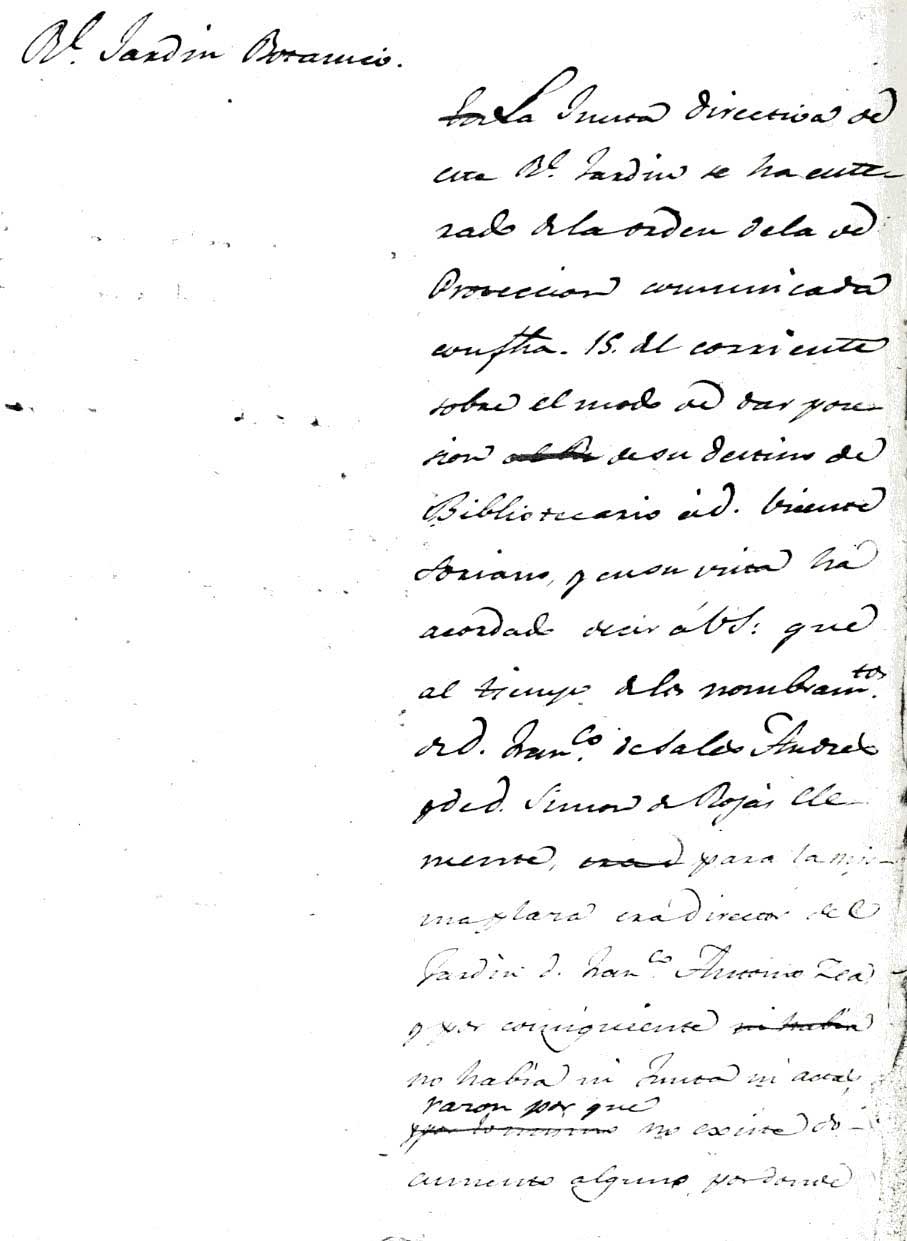 Rl. Jardin Botanico.
La Junta directiva de
este Rl. Jardin se ha ente-
rado de la orden de la de
Proteccion comunicada
con fha. 15. del corriente
sobre el modo de dar pose-
sion de su destino de
Bibliotecario á d. Vicente
Soriano, y en su vista ha
acordado decir á VS: que
al tiempo de los nombramtos.
de d. Franco. de Sales Andres
y de d. Simon de Rojas Cle-
mente, para la mis-
ma plaza era director del
Jardin d. Franco. Antonio Zea
y por consiguiente ni habia
no habia ni Junta ni actas,
razon por que
no existe do-
cumento alguno por donde